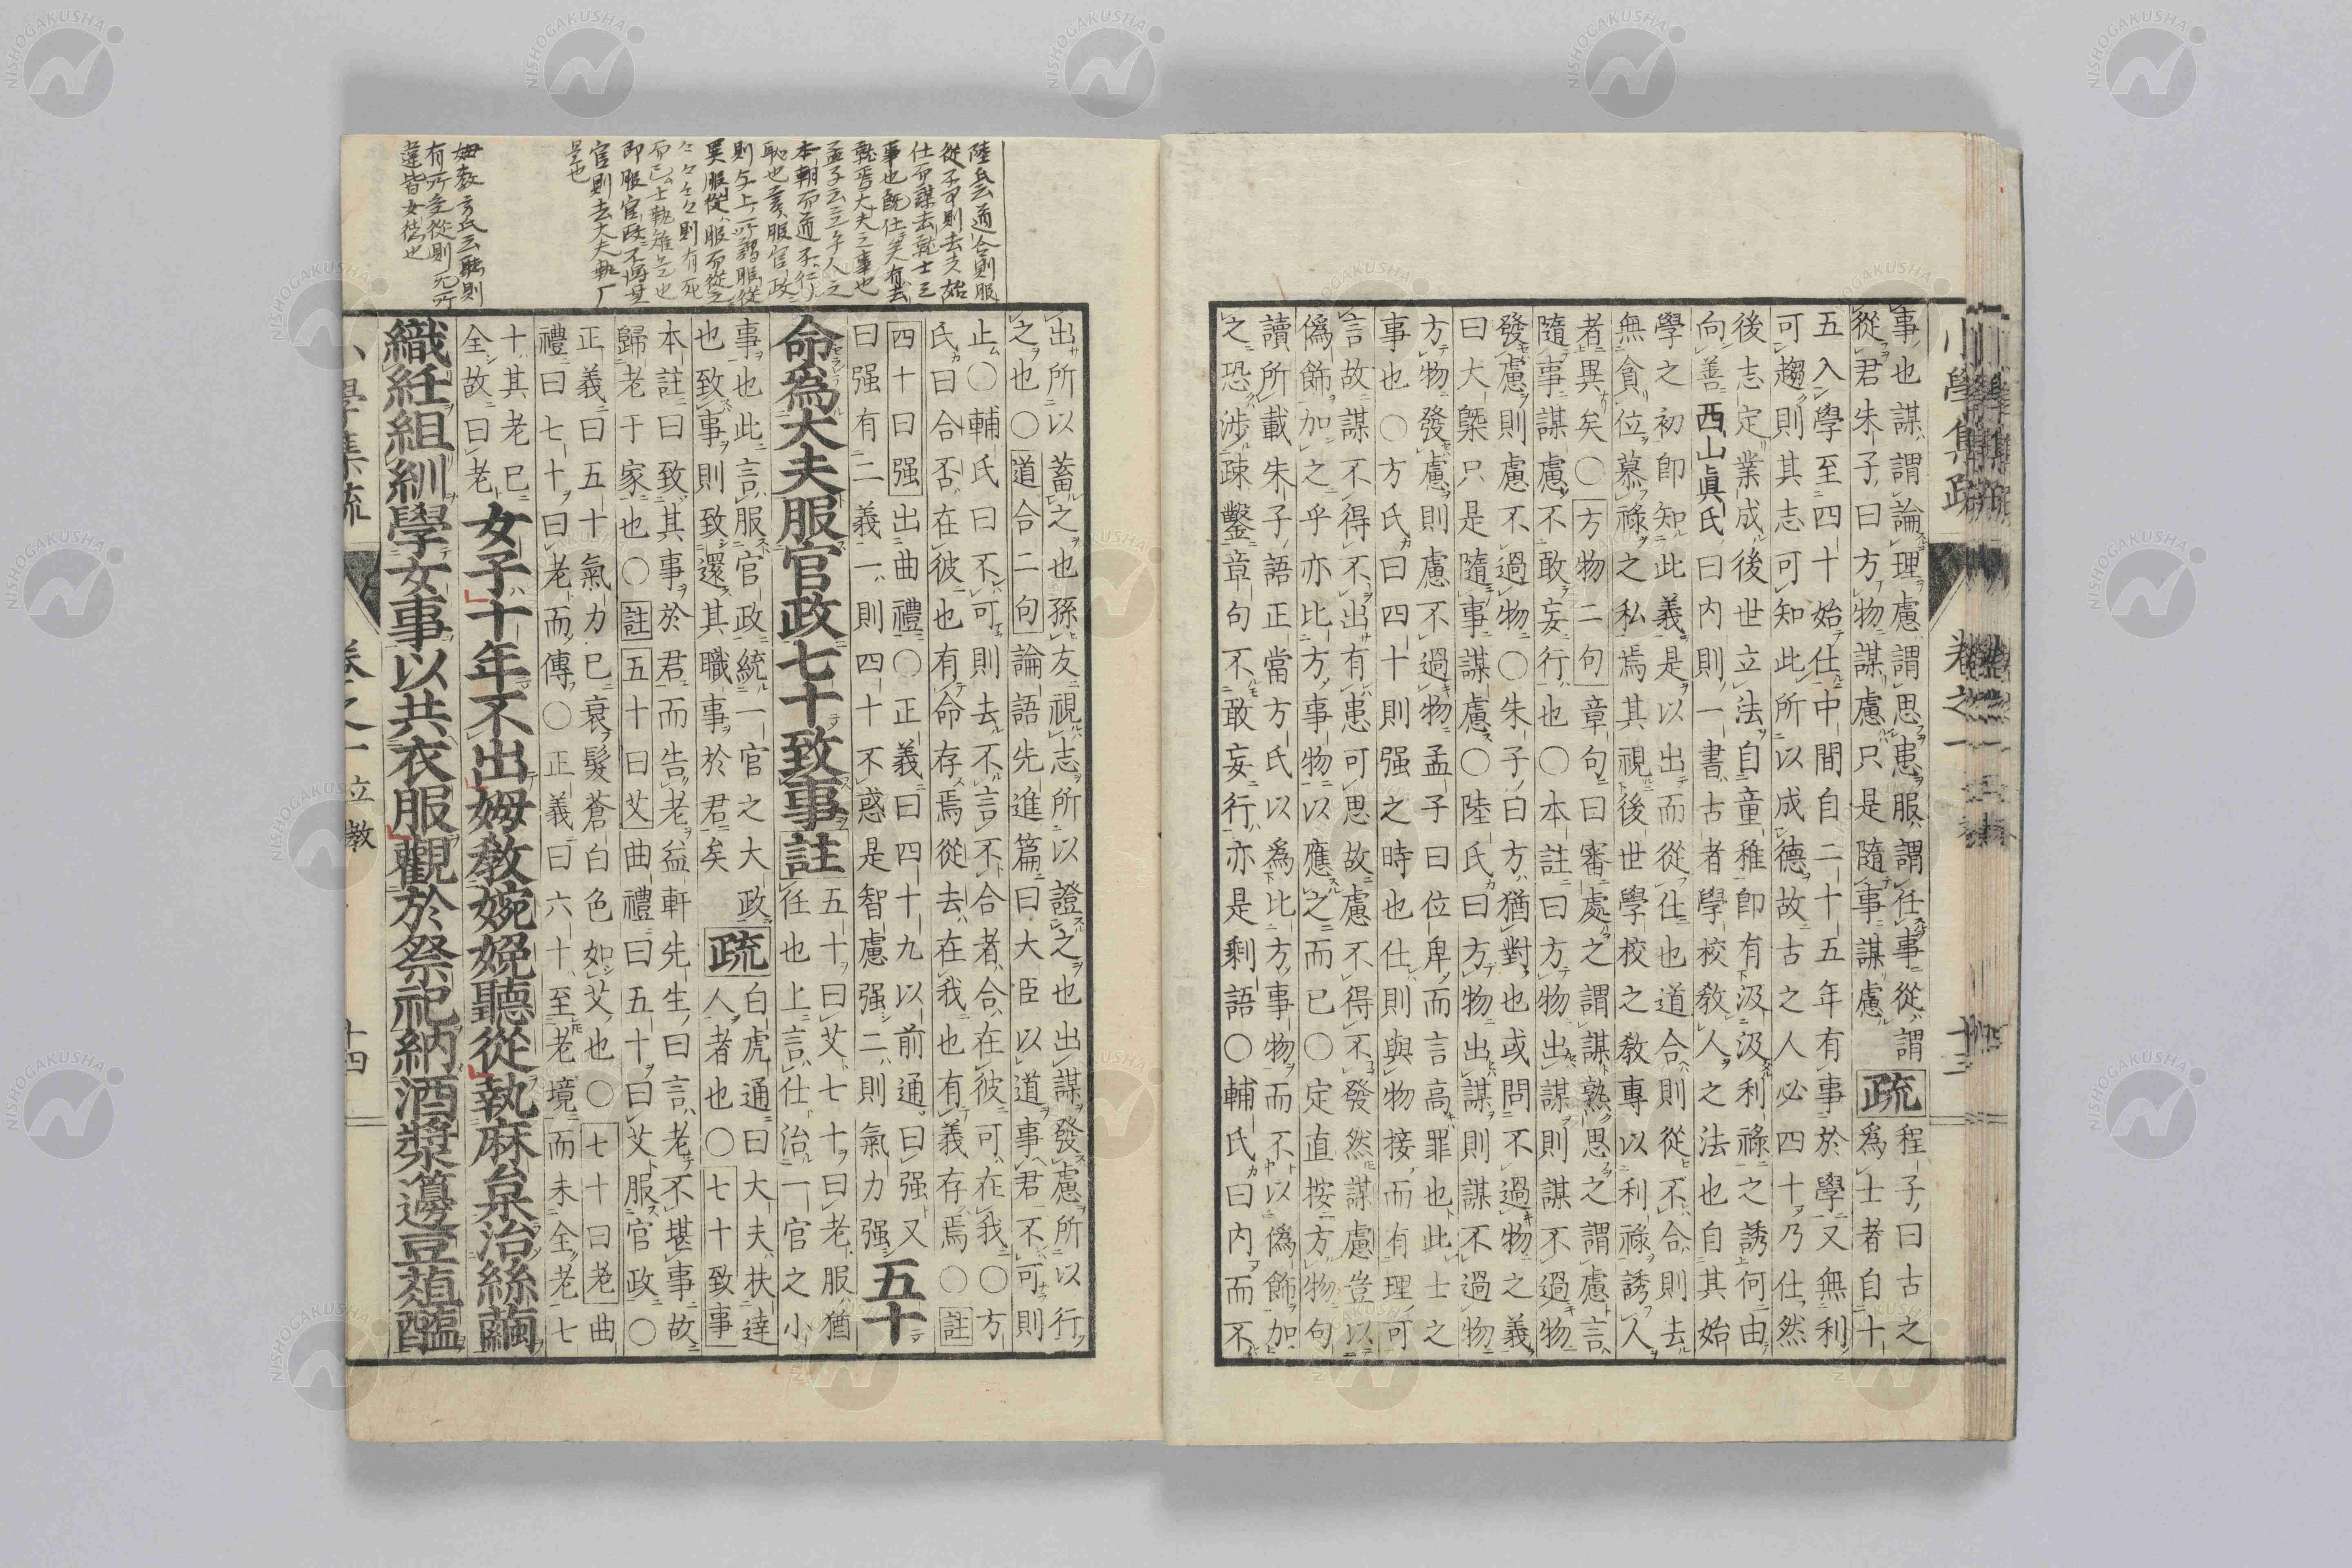 小學集疏 卷之一 十三
事也謀謂論理慮謂思患服謂任事從謂
從君朱子曰方物謀慮只是隨事謀慮
疏
程子曰古之
爲士者自十
五入學至四十始仕中間自二十五年有事於學又無利
可趨則其志可知此所以成德故古之人必四十乃仕然
後志定業成後世立法自童稚即有汲汲利祿之誘何由
向善西山眞氏曰内則一書古者學校教人之法也自其始
學之初即知此義是以出而從仕也道合則從不合則去
無貪位慕祿之私焉其視後世學校之教專以利祿誘人
者異矣〇方物二句章句曰審處之謂謀熟思之謂慮言
隨事謀慮不敢妄行也〇本註曰方物出謀則謀不過物
發慮則慮不過物〇朱子曰方猶對也或問不過物之義
曰大槩只是隨事謀慮〇陸氏曰方物出謀則謀不過物
方物發慮則慮不過物孟子曰位卑而言高罪也此士之
事也〇方氏曰四十則强之時也仕則與物接而有理可
言故謀不得不出有患可思故慮不得不發然謀慮豈以
僞飾加之乎亦比方事物以應之而已〇定直按方物句
讀所載朱子語正當方氏以爲比方事物而不以僞飾加
之恐涉疎鑿章句不敢妄行亦是剩語〇輔氏曰内而不
出所以蓄之也孫友視志所以證之也出謀發慮所以行
之也〇道合二句論語先進篇曰大臣以道事君不可則
止〇輔氏曰不可則去不言不合者合在彼可在我〇方
氏曰合否在彼也有命存焉從去在我也有義存焉〇註
四十曰强出曲禮〇正義曰四十九以前通曰强又
曰强有二義一則四十不惑是智慮强二則氣力强
五十
命爲大夫服官政七十致事註
五十曰艾七十曰老服猶
任也上言仕治一官之小
事也此言服官政統一官之大政
也致事則致還其職事於君矣
疏
白虎通曰大夫扶達
人者也〇七十致事
本註曰致其事於君而告老益軒先生曰言老不堪事故
歸老于家也〇註五十曰艾曲禮曰五十曰艾服官政〇
正義曰五十氣力已衰髮蒼白色如艾也〇七十曰老曲
禮曰七十曰老而傳〇正義曰六十至老境而未全老七
十其老已
全故曰老
女子十年不出姆教婉娩聽從執麻枲治絲繭
織紝組紃學女事以共衣服觀於祭祀納酒漿籩豆葅醢
小學集疏 卷之一 立教 十四
陸氏云道合則服
從不可則去夫始
仕而謀去就士之
事也既仕矣有去
就焉大夫之事也
孟子云立乎人之
本朝而道不行
耻也